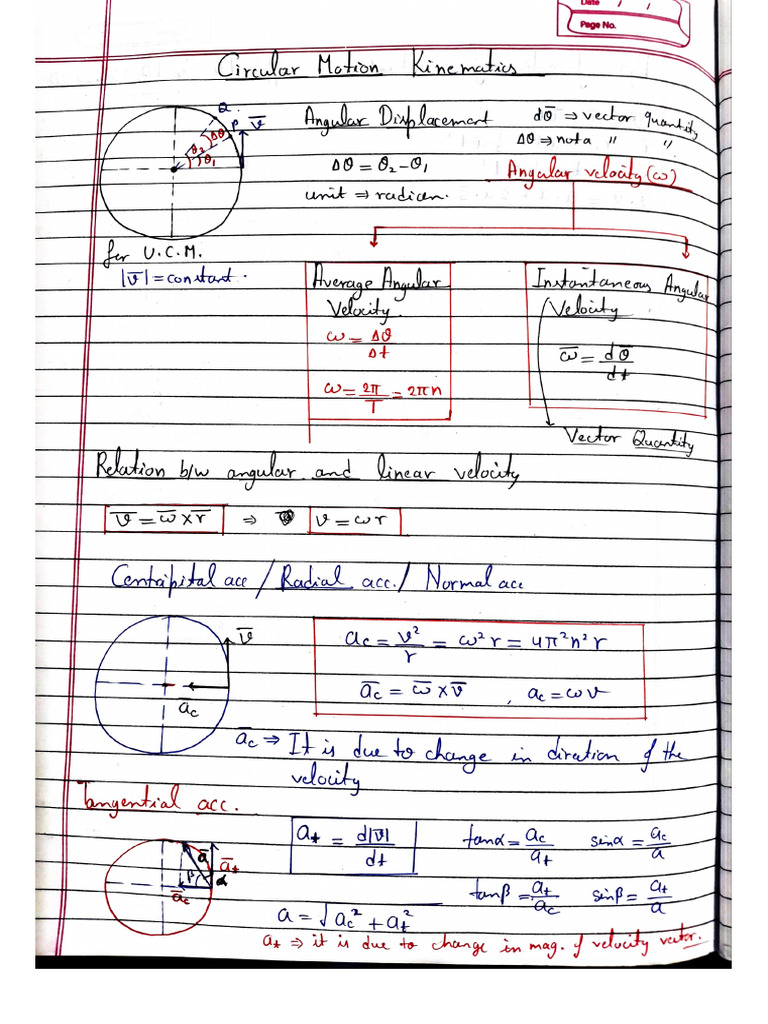 Date / /
Page No.
Circular Motion Kinematics
Q
P v̅
θ₂ Δθ
θ₁
Angular Displacement dθ̅ ⇒ vector quantity
Δθ ⇒ not a " "
Δθ = θ₂ - θ₁
Angular velocity (ω)
unit ⇒ radian.
for U.C.M.
|v̅| = constant.
Average Angular Velocity
ω = Δθ/Δt
ω = 2π/T = 2πn
Instantaneous Angular Velocity
ω̅ = dθ̅/dt
Vector Quantity
Relation b/w angular and linear velocity
v̅ = ω̅ × r̅ ⇒ v = ωr
Centripital acc / Radial acc. / Normal acc
v̅
a̅c
ac = v²/r = ω²r = 4π²n²r
a̅c = ω̅ × v̅ , ac = ωv
a̅c ⇒ It is due to change in diration of the
velocity
Tangential acc.
a̅ a̅t
β α
a̅c
at = d|v̅|/dt
tanα = ac/at sinα = ac/a
tanβ = at/ac sinβ = at/a
a = √ac² + at²
at ⇒ it is due to change in mag. of velocity vector.